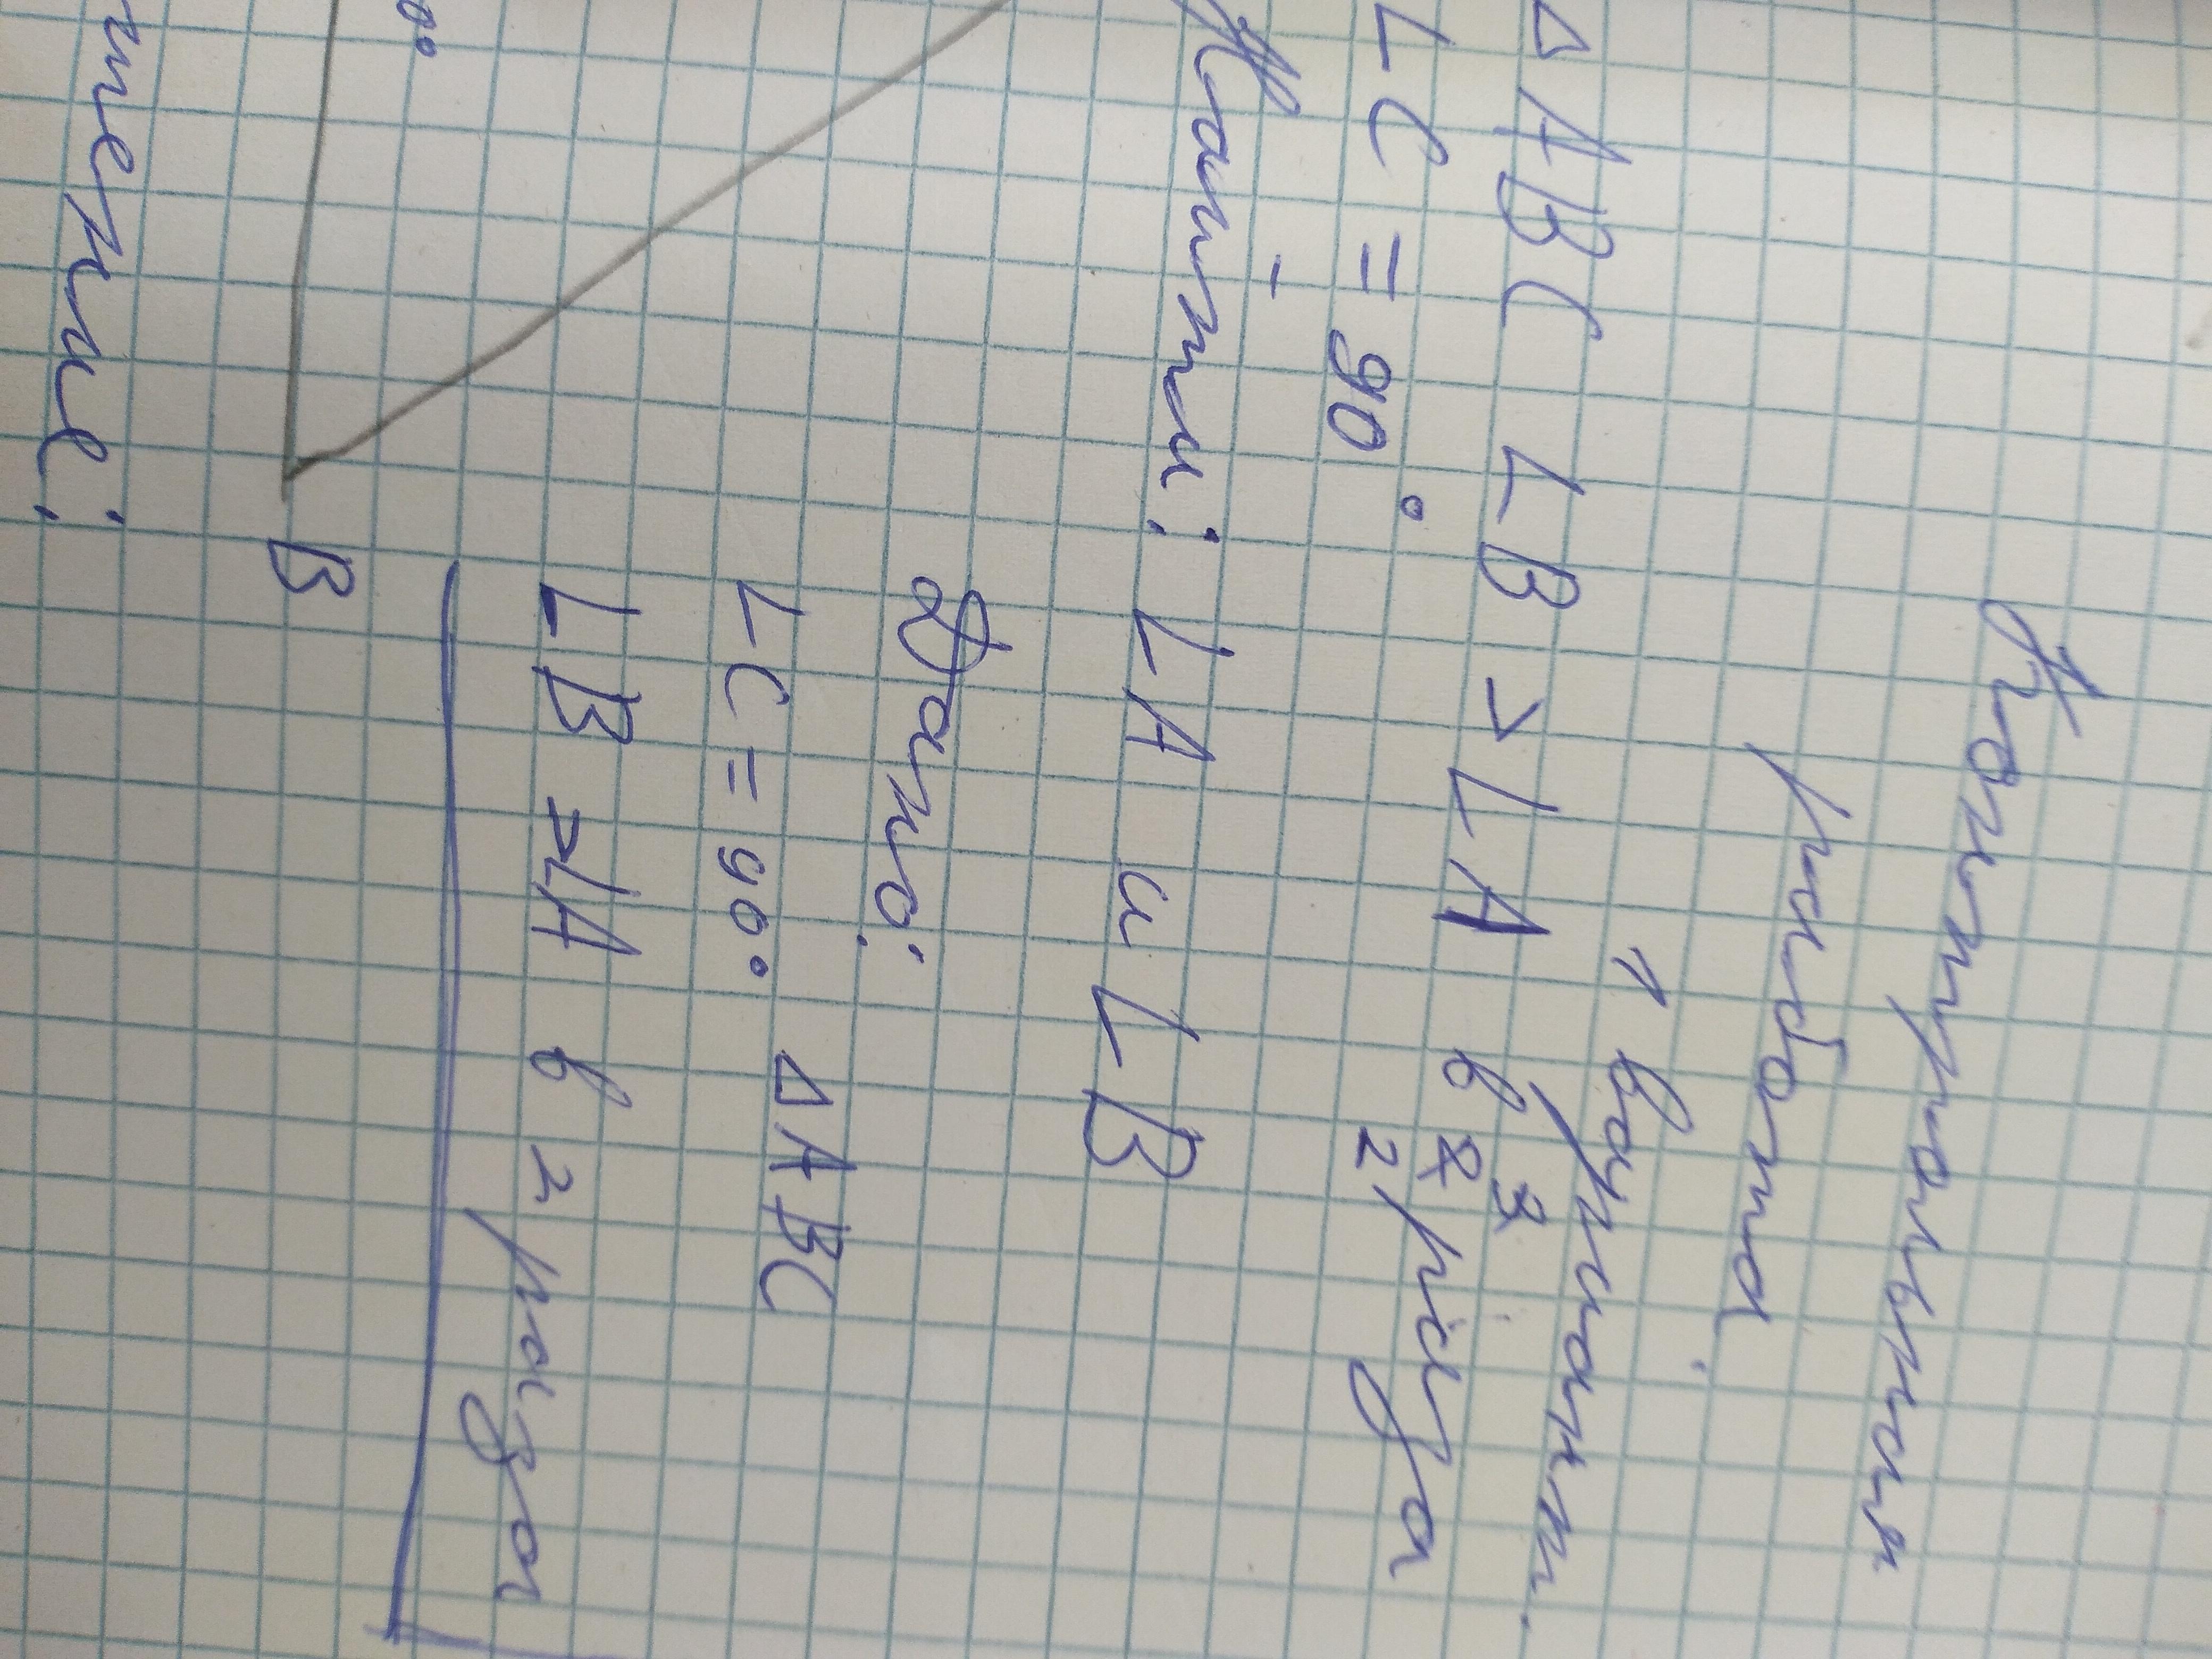 Контрольная
работа
1 вариант.
△ ABC ∠B > ∠A в 3
2 раза
∠C = 90°
Найти: ∠A и ∠B
Дано: △ABC
∠C = 90°
∠B > ∠A в 2 раза
B